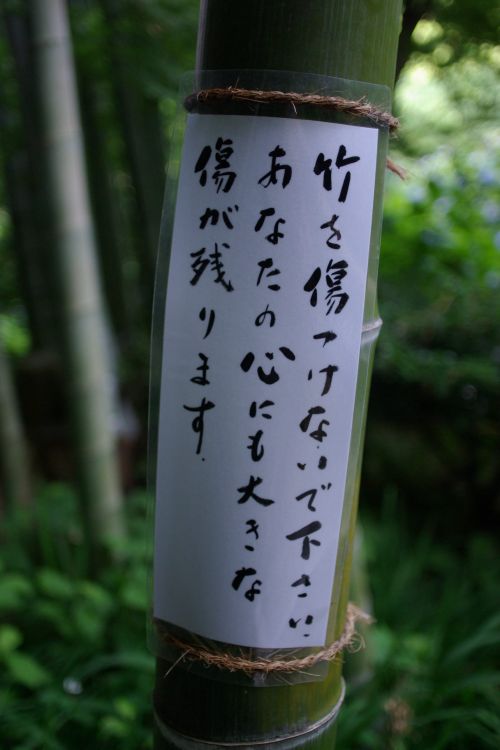 竹を傷つけないで下さい
あなたの心にも大きな
傷が残ります.